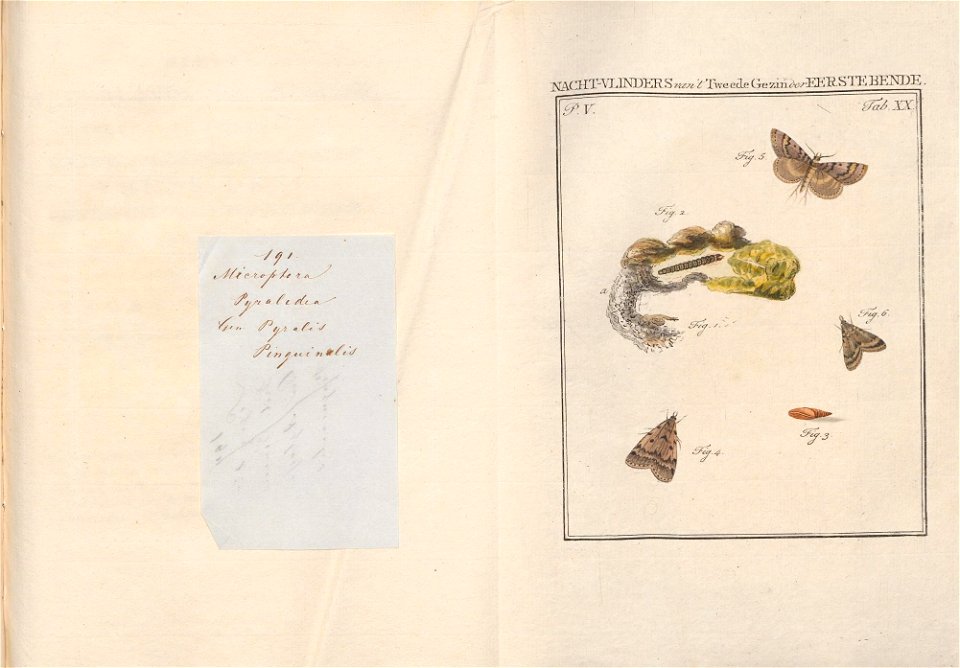 191.
Microptera
Pyraledea
Gen Pyralis
Pinguinalis
NACHT-VLINDERS van't Tweede Gezin der EERSTE BENDE.
P. V.
Tab. XX.
Fig. 5.
Fig. 2
a
Fig. 1.
Fig. 6.
Fig. 3.
Fig. 4.